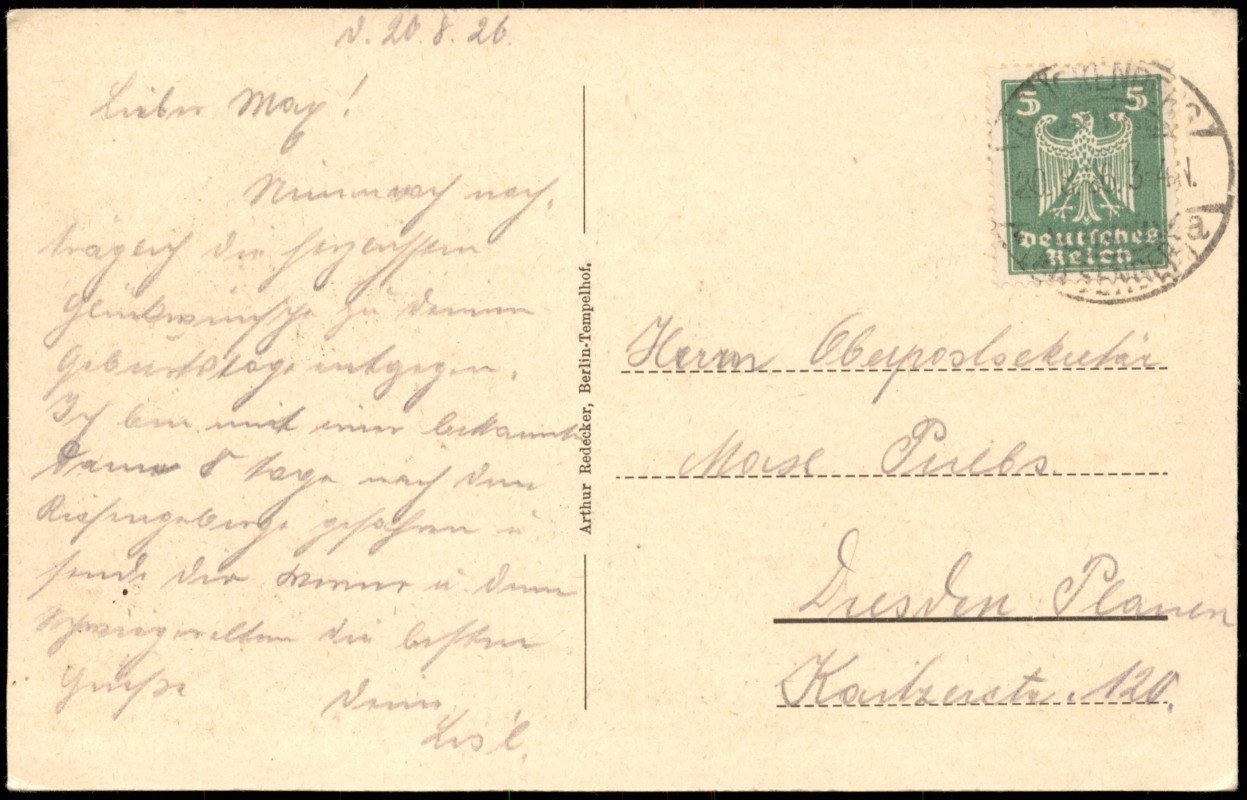 d. 20.8.26.
Lieber Max!
Nimm noch nach-
träglich die herzlichsten
Glückwünsche zu Deinem
Geburtstage entgegen.
Ich bin mit einer bekannten
Dame 8 Tage nach dem
Riesengebirge gefahren u
sende Dir u Deinen
Schwiegereltern die besten
Grüße Dein
Arthur Redecker, Berlin-Tempelhof.
5 5
Deutsches
Reich
20. 3-4 N.
a
Herrn Oberpostsekretär
Max
Dresden Plauen
Kaitzerstr. 120.